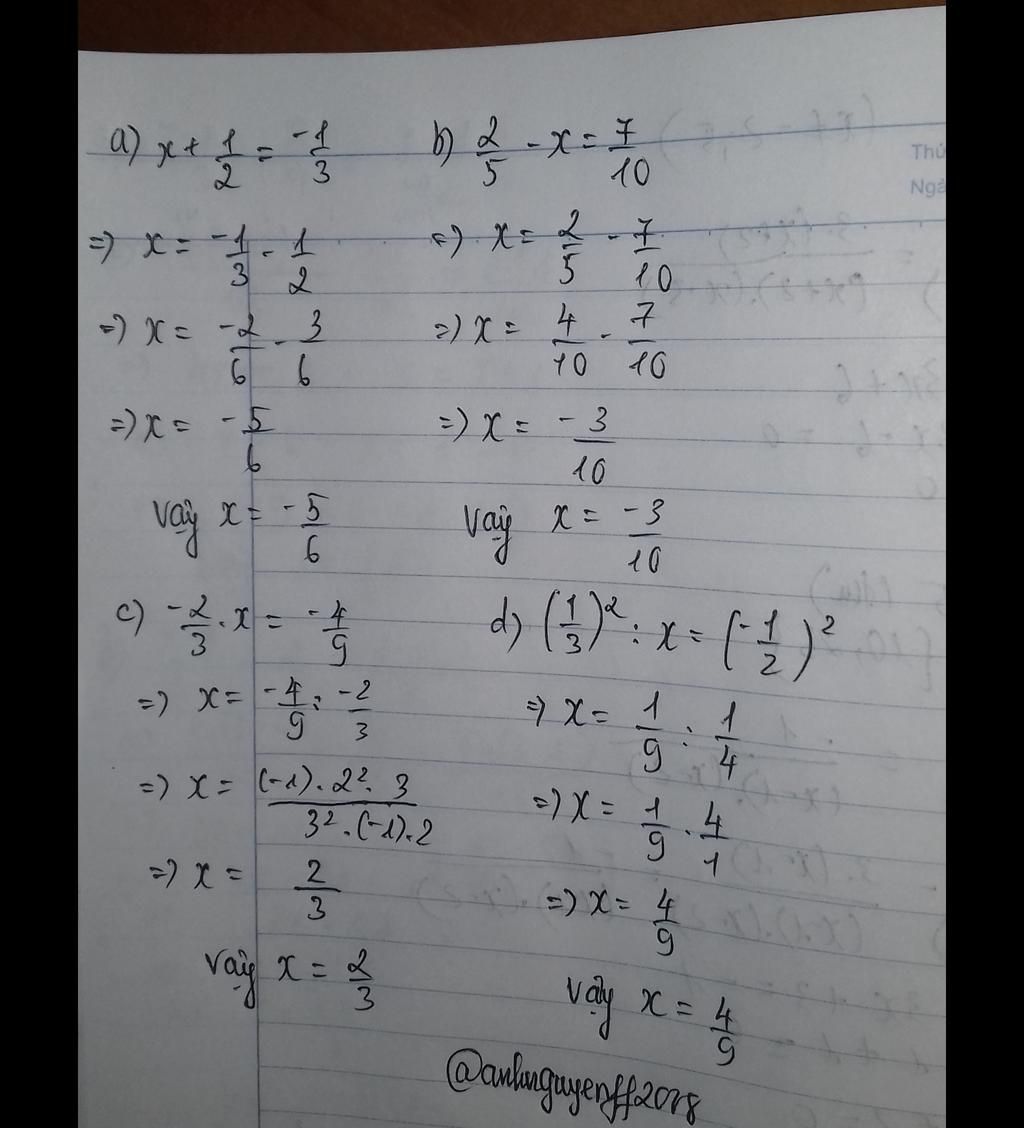 a) x + 1/2 = -1/3
=> x = -1/3 - 1/2
=> x = -2/6 - 3/6
=> x = -5/6
Vậy x = -5/6
b) 2/5 - x = 7/10
=> x = 2/5 - 7/10
=> x = 4/10 - 7/10
=> x = -3/10
Vậy x = -3/10
c) -2/3 . x = -4/9
=> x = -4/9 : -2/3
=> x = (-1) . 2² . 3 / 3² . (-1) . 2
=> x = 2/3
Vậy x = 2/3
d) (1/3)² : x = (-1/2)²
=> x = 1/9 : 1/4
=> x = 1/9 . 4/1
=> x = 4/9
Vậy x = 4/9
@anhnguyenff2018
Thứ
Ngà